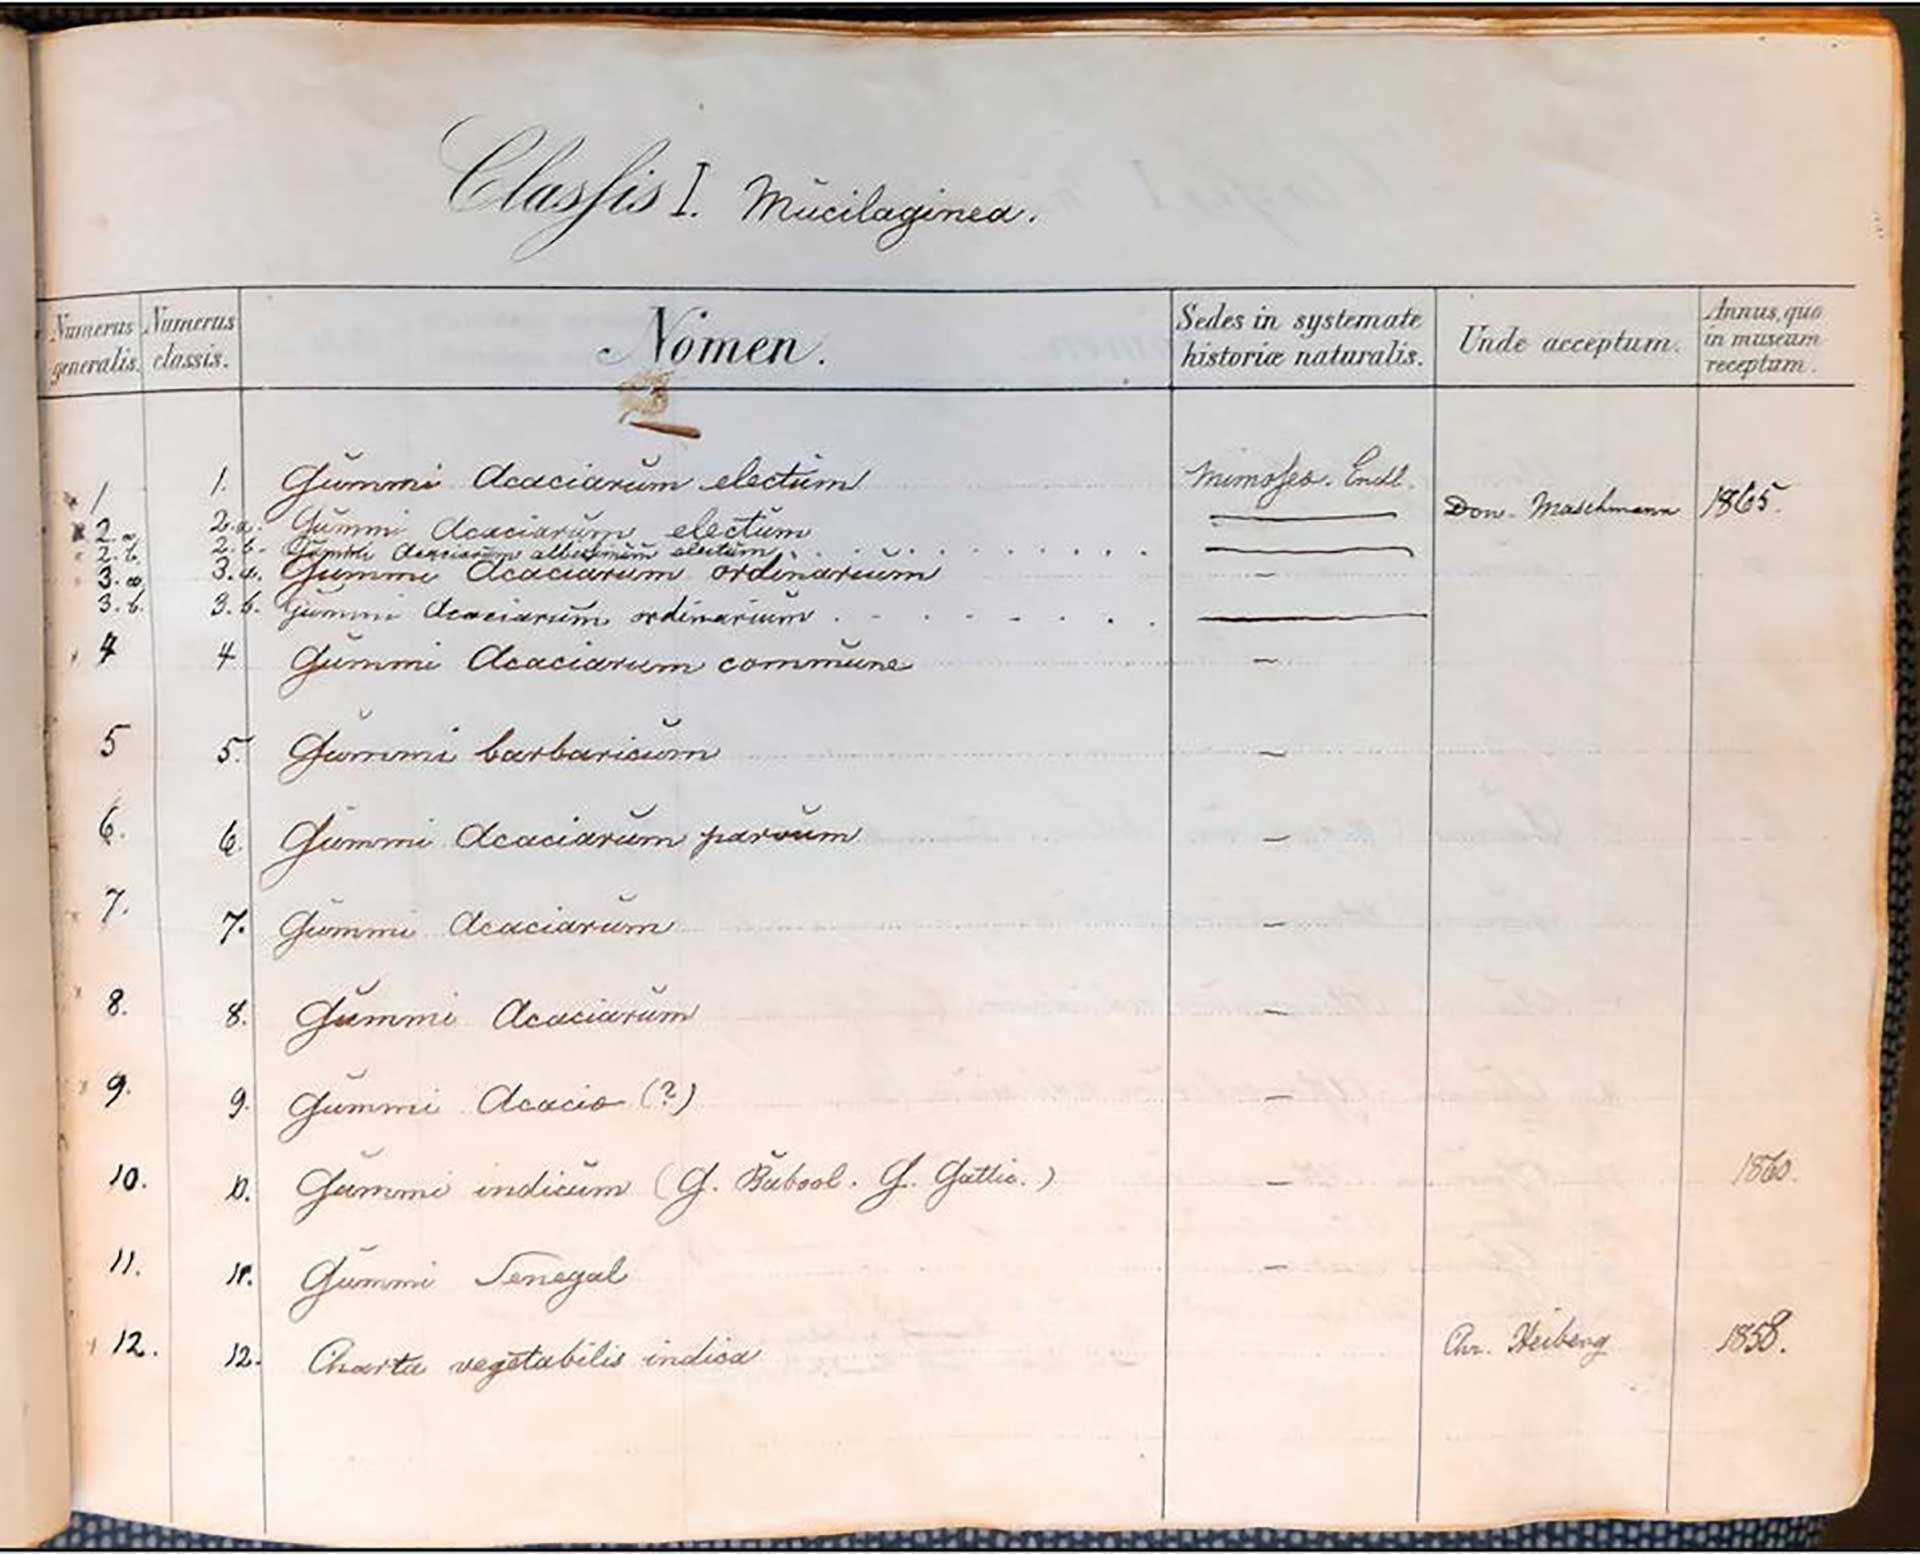 Classis I. Mucilaginea.
Numerus generalis. Numerus classis. Nomen. Sedes in systemate historiæ naturalis. Unde acceptum. Annus, quo in museum receptum.
1 1. Gŭmmi Acaciarŭm electŭm Mimoseæ. Endl.
Don. Maschmann 1865.
2.a. 2.a. Gŭmmi Acaciarŭm electŭm —
2.b. 2.b. Gŭmmi Acaciarŭm albissimŭm electŭm —
3.a. 3.a. Gŭmmi Acaciarŭm ordinariŭm —
3.b. 3.b. Gŭmmi Acaciarŭm ordinariŭm —
4 4 Gŭmmi Acaciarŭm commŭne —
5 5. Gŭmmi barbaricŭm —
6. 6. Gŭmmi Acaciarŭm parvŭm —
7. 7. Gŭmmi Acaciarŭm —
8. 8. Gŭmmi Acaciarŭm —
9. 9. Gŭmmi Acaciæ (?) —
10. 10. Gŭmmi indicŭm (G. Băbool. G. Gattie.) — 1860.
11. 11. Gŭmmi Senegal —
12. 12. Charta vegetabilis indica Chr. Heiberg 1858.